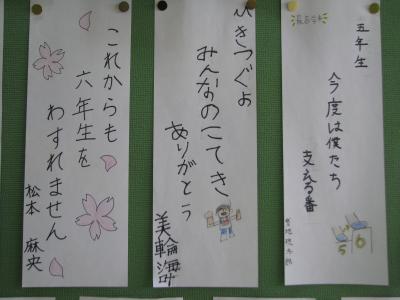 五年生
今度は僕たち
支える番
5 6
ひきつぐよ
みんなのこてき
ありがとう
美輪海
これからも
六年生を
わすれません
松本 麻央